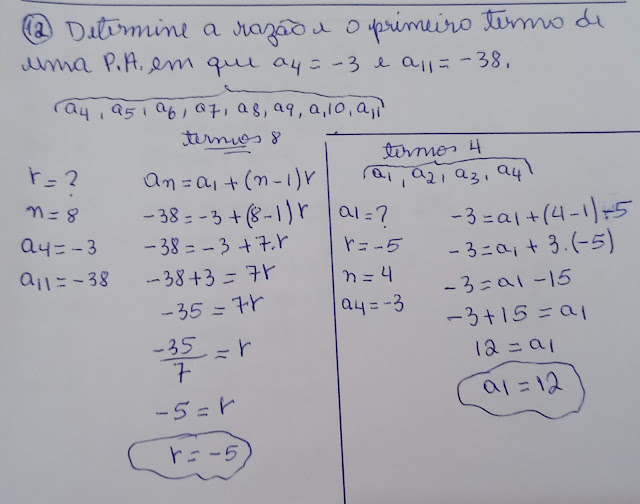 12 Determine a razão e o primeiro termo de
uma P.A. em que a4 = -3 e a11 = -38.
a4, a5, a6, a7, a8, a9, a,10, a11
termos 8
r = ?
n = 8
a4 = -3
a11 = -38
an = a1 + (n-1) r
-38 = -3 + (8-1) r
-38 = -3 + 7.r
-38+3 = 7r
-35 = 7r
-35/7 = r
-5 = r
r = -5
termos 4
a1, a2, a3, a4
a1 = ?
r = -5
n = 4
a4 = -3
-3 = a1 + (4-1) -5
-3 = a1 + 3.(-5)
-3 = a1 - 15
-3 + 15 = a1
12 = a1
a1 = 12